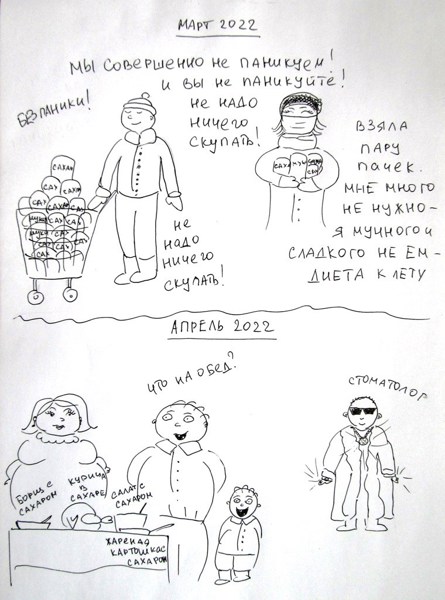 МАРТ 2022
МЫ СОВЕРШЕННО НЕ ПАНИКУЕМ!
И ВЫ НЕ ПАНИКУЙТЕ!
НЕ НАДО
НИЧЕГО
СКУПАТЬ!
БЕЗ ПАНИКИ!
САХАР
САХ
САХ
САХ
САХАР
САХ
МУКА
САХ
САХ
МУКА
САХ
САХ
САХ
САХ
САХ
НЕ
НАДО
НИЧЕГО
СКУПАТЬ!
САХ
МУК
ВЗЯЛА
ПАРУ
ПАЧЕК.
МНЕ МНОГО
НЕ НУЖНО-
Я МУЧНОГО И
СЛАДКОГО НЕ ЕМ-
ДИЕТА К ЛЕТУ
АПРЕЛЬ 2022
ЧТО НА ОБЕД?
СТОМАТОЛОГ
БОРЩ С
САХАРОМ
КУРИЦА
В
САХАРЕ
САЛАТ С
САХАРОМ
ЖАРЕНАЯ
КАРТОШКА С
САХАРОМ